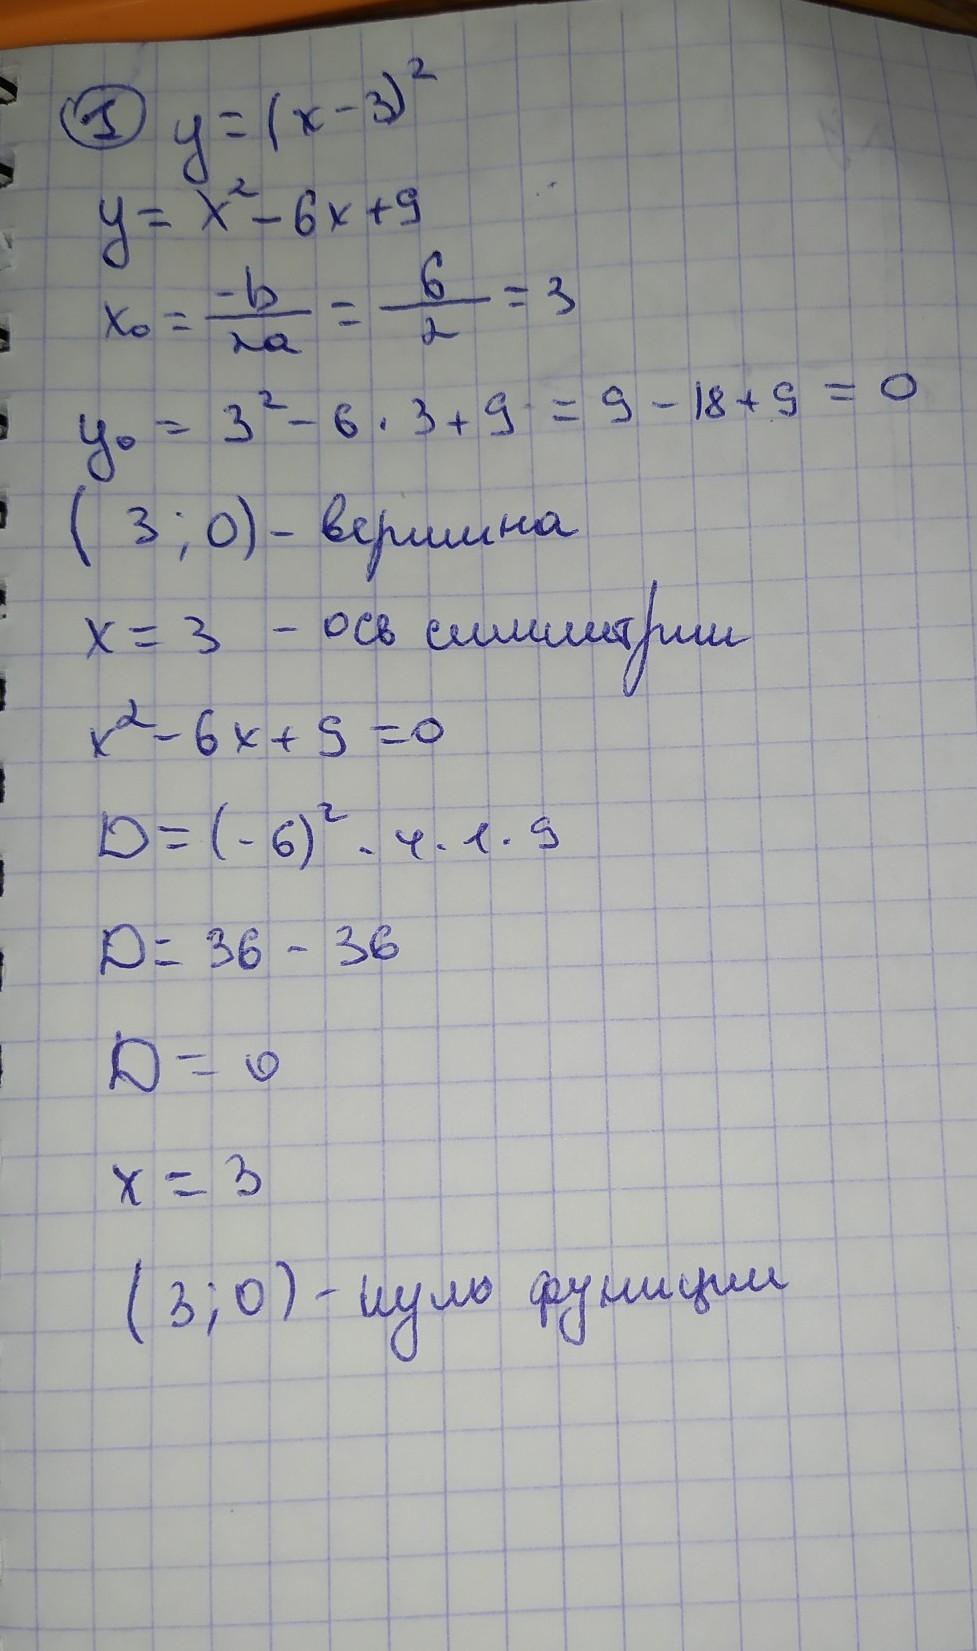 ① y = (x - 3)²
y = x² - 6x + 9
x₀ = -b/2a = 6/2 = 3
y₀ = 3² - 6 · 3 + 9 = 9 - 18 + 9 = 0
(3; 0) - вершина
x = 3 - ось симметрии
x² - 6x + 9 = 0
D = (-6)² - 4 · 1 · 9
D = 36 - 36
D = 0
x = 3
(3; 0) - нуль функции